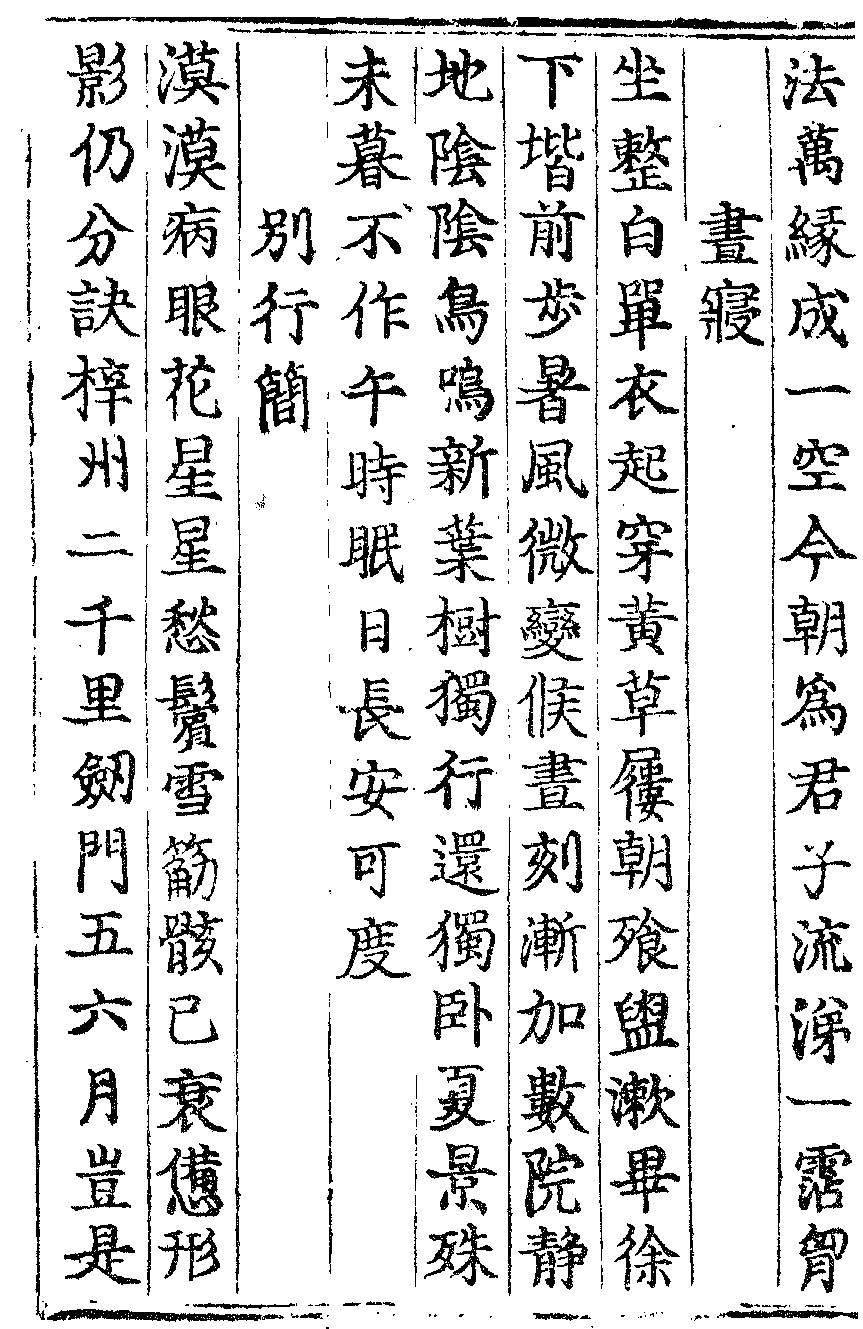 法萬緣成一空今朝爲君子流涕一霑胷
晝寢
坐整白單衣起穿黃草屨朝飡盥漱畢徐
下堦前步暑風微變候晝刻漸加數院静
地陰陰鳥鳴新葉樹獨行還獨卧夏景殊
未暮不作午時眠日長安可度
別行簡
漠漠病眼花星星愁鬢雪筋骸已衰憊形
影仍分訣梓州二千里劒門五六月豈是